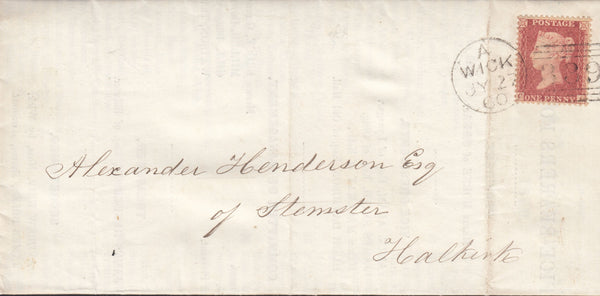 POSTAGE
ONE PENNY
A
WICK
JY 2
60
Alexander Henderson Esq
of Stemster
Halkirk